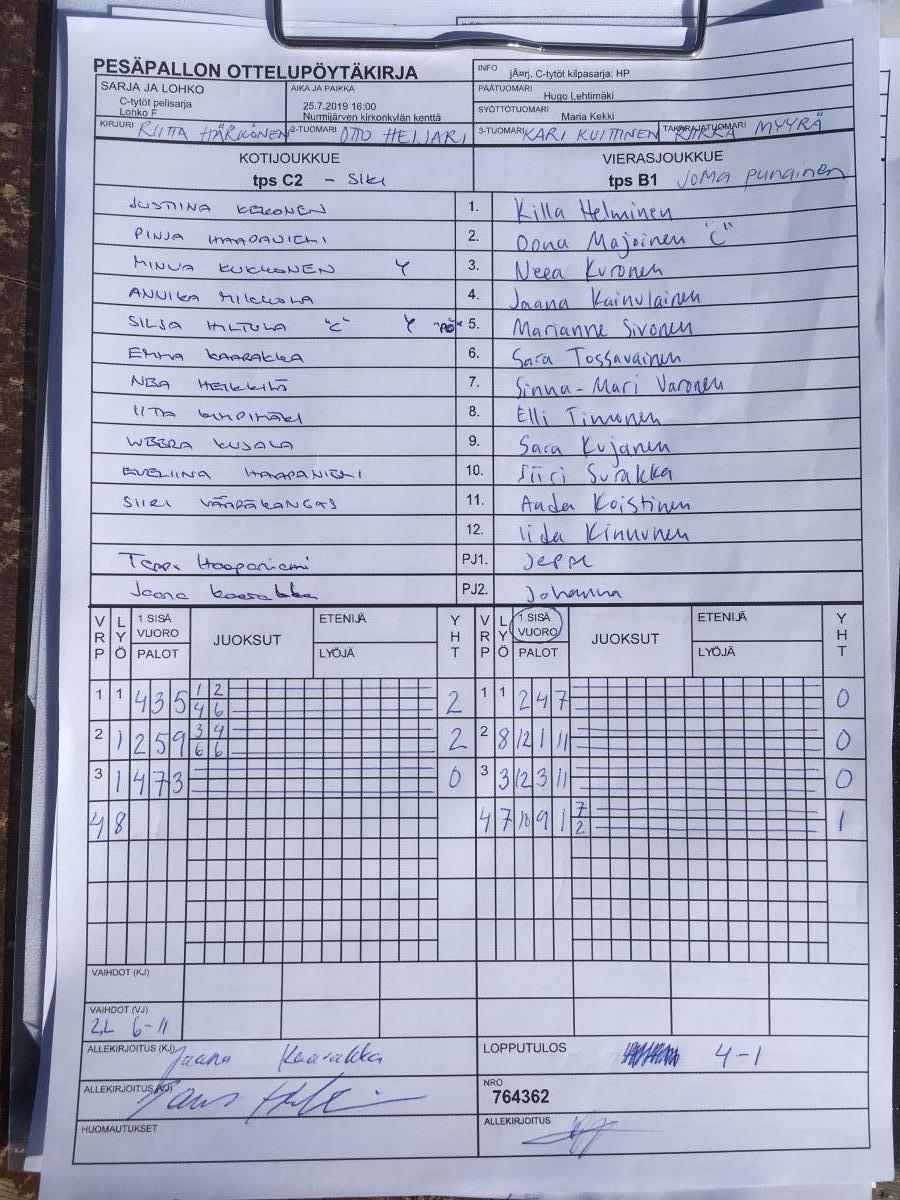 PESÄPALLON OTTELUPÖYTÄKIRJA
INFO jÃ¤rj. C-tytöt kilpasarja: HP
SARJA JA LOHKO
C-tytöt pelisarja
Lohko F
AIKA JA PAIKKA
25.7.2019 16:00
Nurmijärven kirkonkylän kenttä
PÄÄTUOMARI
Hugo Lehtimäki
SYÖTTÖTUOMARI
Maria Kekki
KIRJURI RIITTA HÄRKÖNEN 2-TUOMARI OTTO HEIJARI 3-TUOMARI KARI KUITTINEN TAKARAJATUOMARI MYYRÄ
KOTIJOUKKUE VIERASJOUKKUE
tps C2 - Siki tps B1 JoMa punainen
JUSTIINA KEKONEN 1. Killa Helminen
PINJA HAAPANIEMI 2. Oona Majoinen "C"
MINNA KUKKONEN Y 3. Neea Kuronen
ANNIKA MIKKOLA 4. Jaana Kainulainen
SILJA HILTULA "C" Y 5. Marianne Sivonen
EMMA KAARAKKA 6. Sara Tossavainen
NEA HEIKKILÄ 7. Sinna-Mari Varonen
IITA 8. Elli Timonen
WEERA KUJALA 9. Sara Kujanen
EVELIINA HAAPANIEMI 10. Siiri Surakka
SIIRI VÄÄPÄKANGAS 11. Anda Koistinen
12. Iida Kinnunen
Teppo Haapaniemi PJ1. Jeppe
Jaana Kaarakka PJ2. Johanna
VRP LYÖ 1.SISÄ VUORO PALOT JUOKSUT ETENIJÄ LYÖJÄ YHT VRP LYÖ 1.SISÄ VUORO PALOT JUOKSUT ETENIJÄ LYÖJÄ YHT
1 1 4 3 5 1 2 2 1 1 2 4 7 0
4 6
2 1 2 5 9 3 4 2 2 8 12 1 11 0
6 6
3 1 4 7 3 0 3 3 12 3 11 0
4 8 4 7 10 9 1 7 1
2
VAIHDOT (KJ)
VAIHDOT (VJ)
2,L 6-11
ALLEKIRJOITUS (KJ) Jaana Kaarakka
LOPPUTULOS 4-1
ALLEKIRJOITUS (VJ)
NRO
764362
HUOMAUTUKSET
ALLEKIRJOITUS